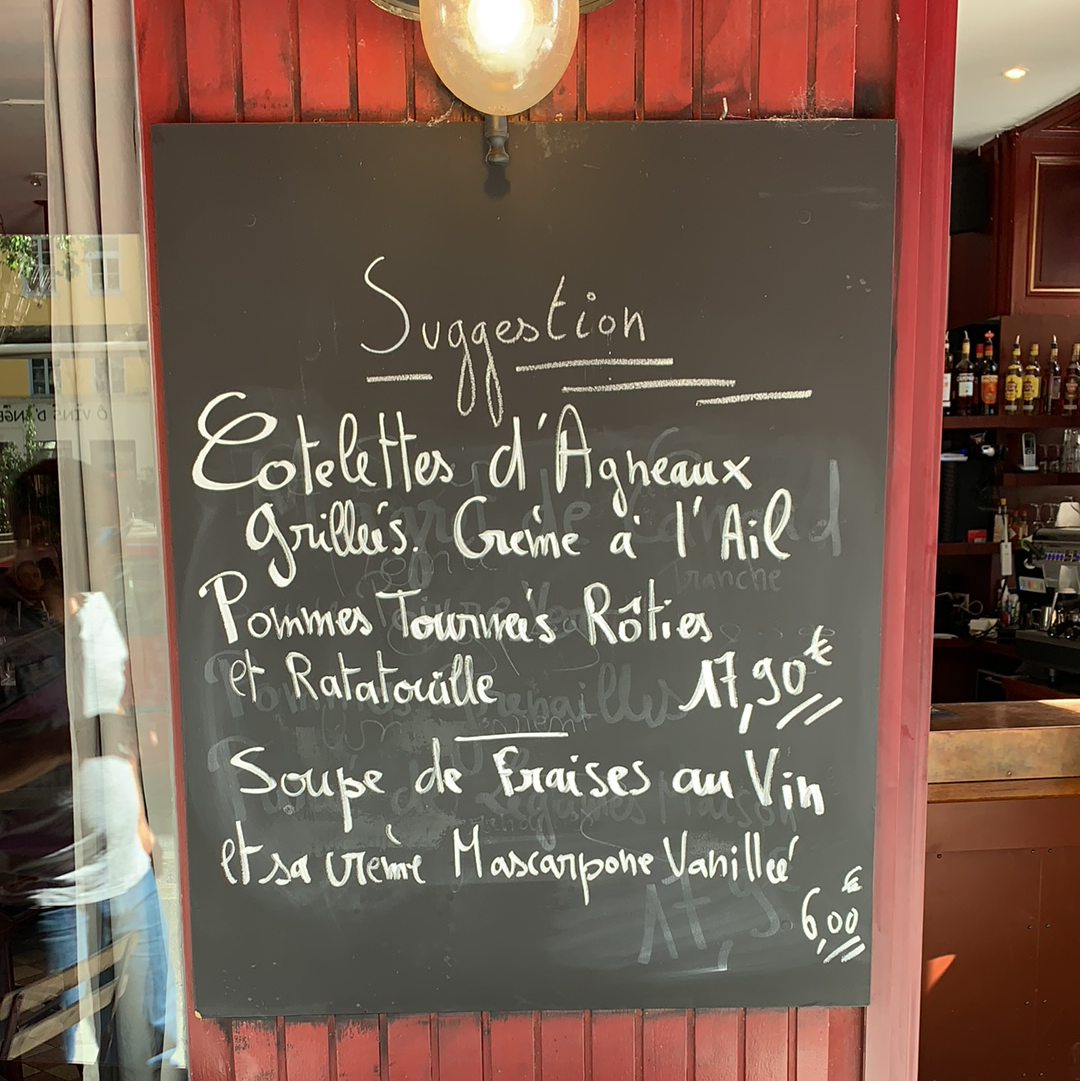 Suggestion
Cotelettes d'Agneaux
grillées. Crème à l'Ail
Pommes Tournées Rôties
et Ratatouille 17,90€
Soupe de Fraises au Vin
et sa crème Mascarpone Vanillée
6,00€
17,9